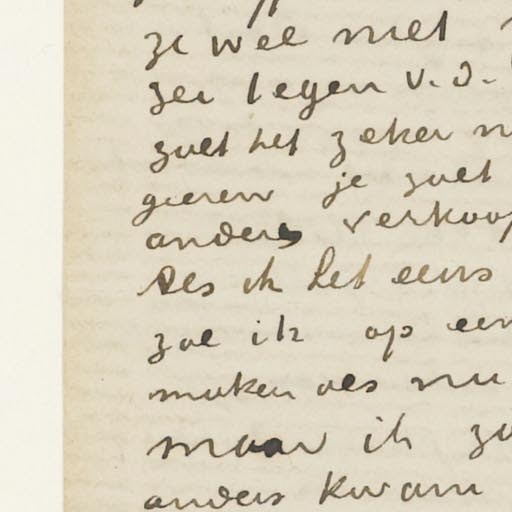 ze wel met
zei tegen v. d.
zult het zeker
gieren je zult
anders verkoop
Als ik het eens
zal ik op een
maken als nu
maar ik zo
anders kwam